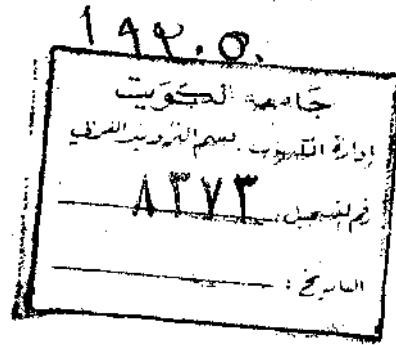 ١٩٢٠٥٠
جامعة الكويت
إدارة المكتبات قسم التزويد العربي
رقم التسجيل: ٨٣٧٣
التاريخ: